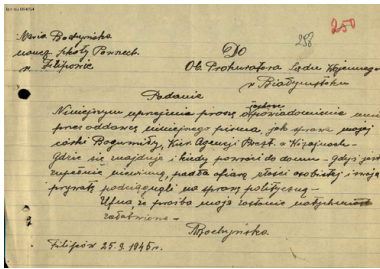 250
258
Maria Boczyńska
naucz. Szkoły Powszech.
w Filipowie
Do
Ob. Prokuratora Sądu Wojennego
w Białymstoku
Podanie
Niniejszym uprzejmie proszę o powiadomienie mnie
przez oddawcę niniejszego pisma, jak sprawa mojej
córki Bogumiły, Kier. Agencji Poczt. w
Gdzie się znajduje i kiedy powróci do domu - gdyż jest
zupełnie niewinną, padła ofiarą złości osobistej i
prywatę podciągnęli na sprawę polityczną -
Ufna, że prośba moja zostanie natychmiast
załatwiona -
MBoczyńska
Filipów 25.9.1945 r.